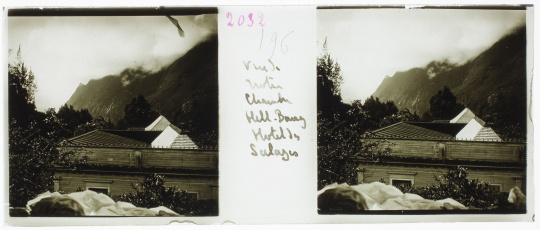 2032
196
Vue de
Notre
Chambre
Hell-Bourg
Hotel des
Salazes